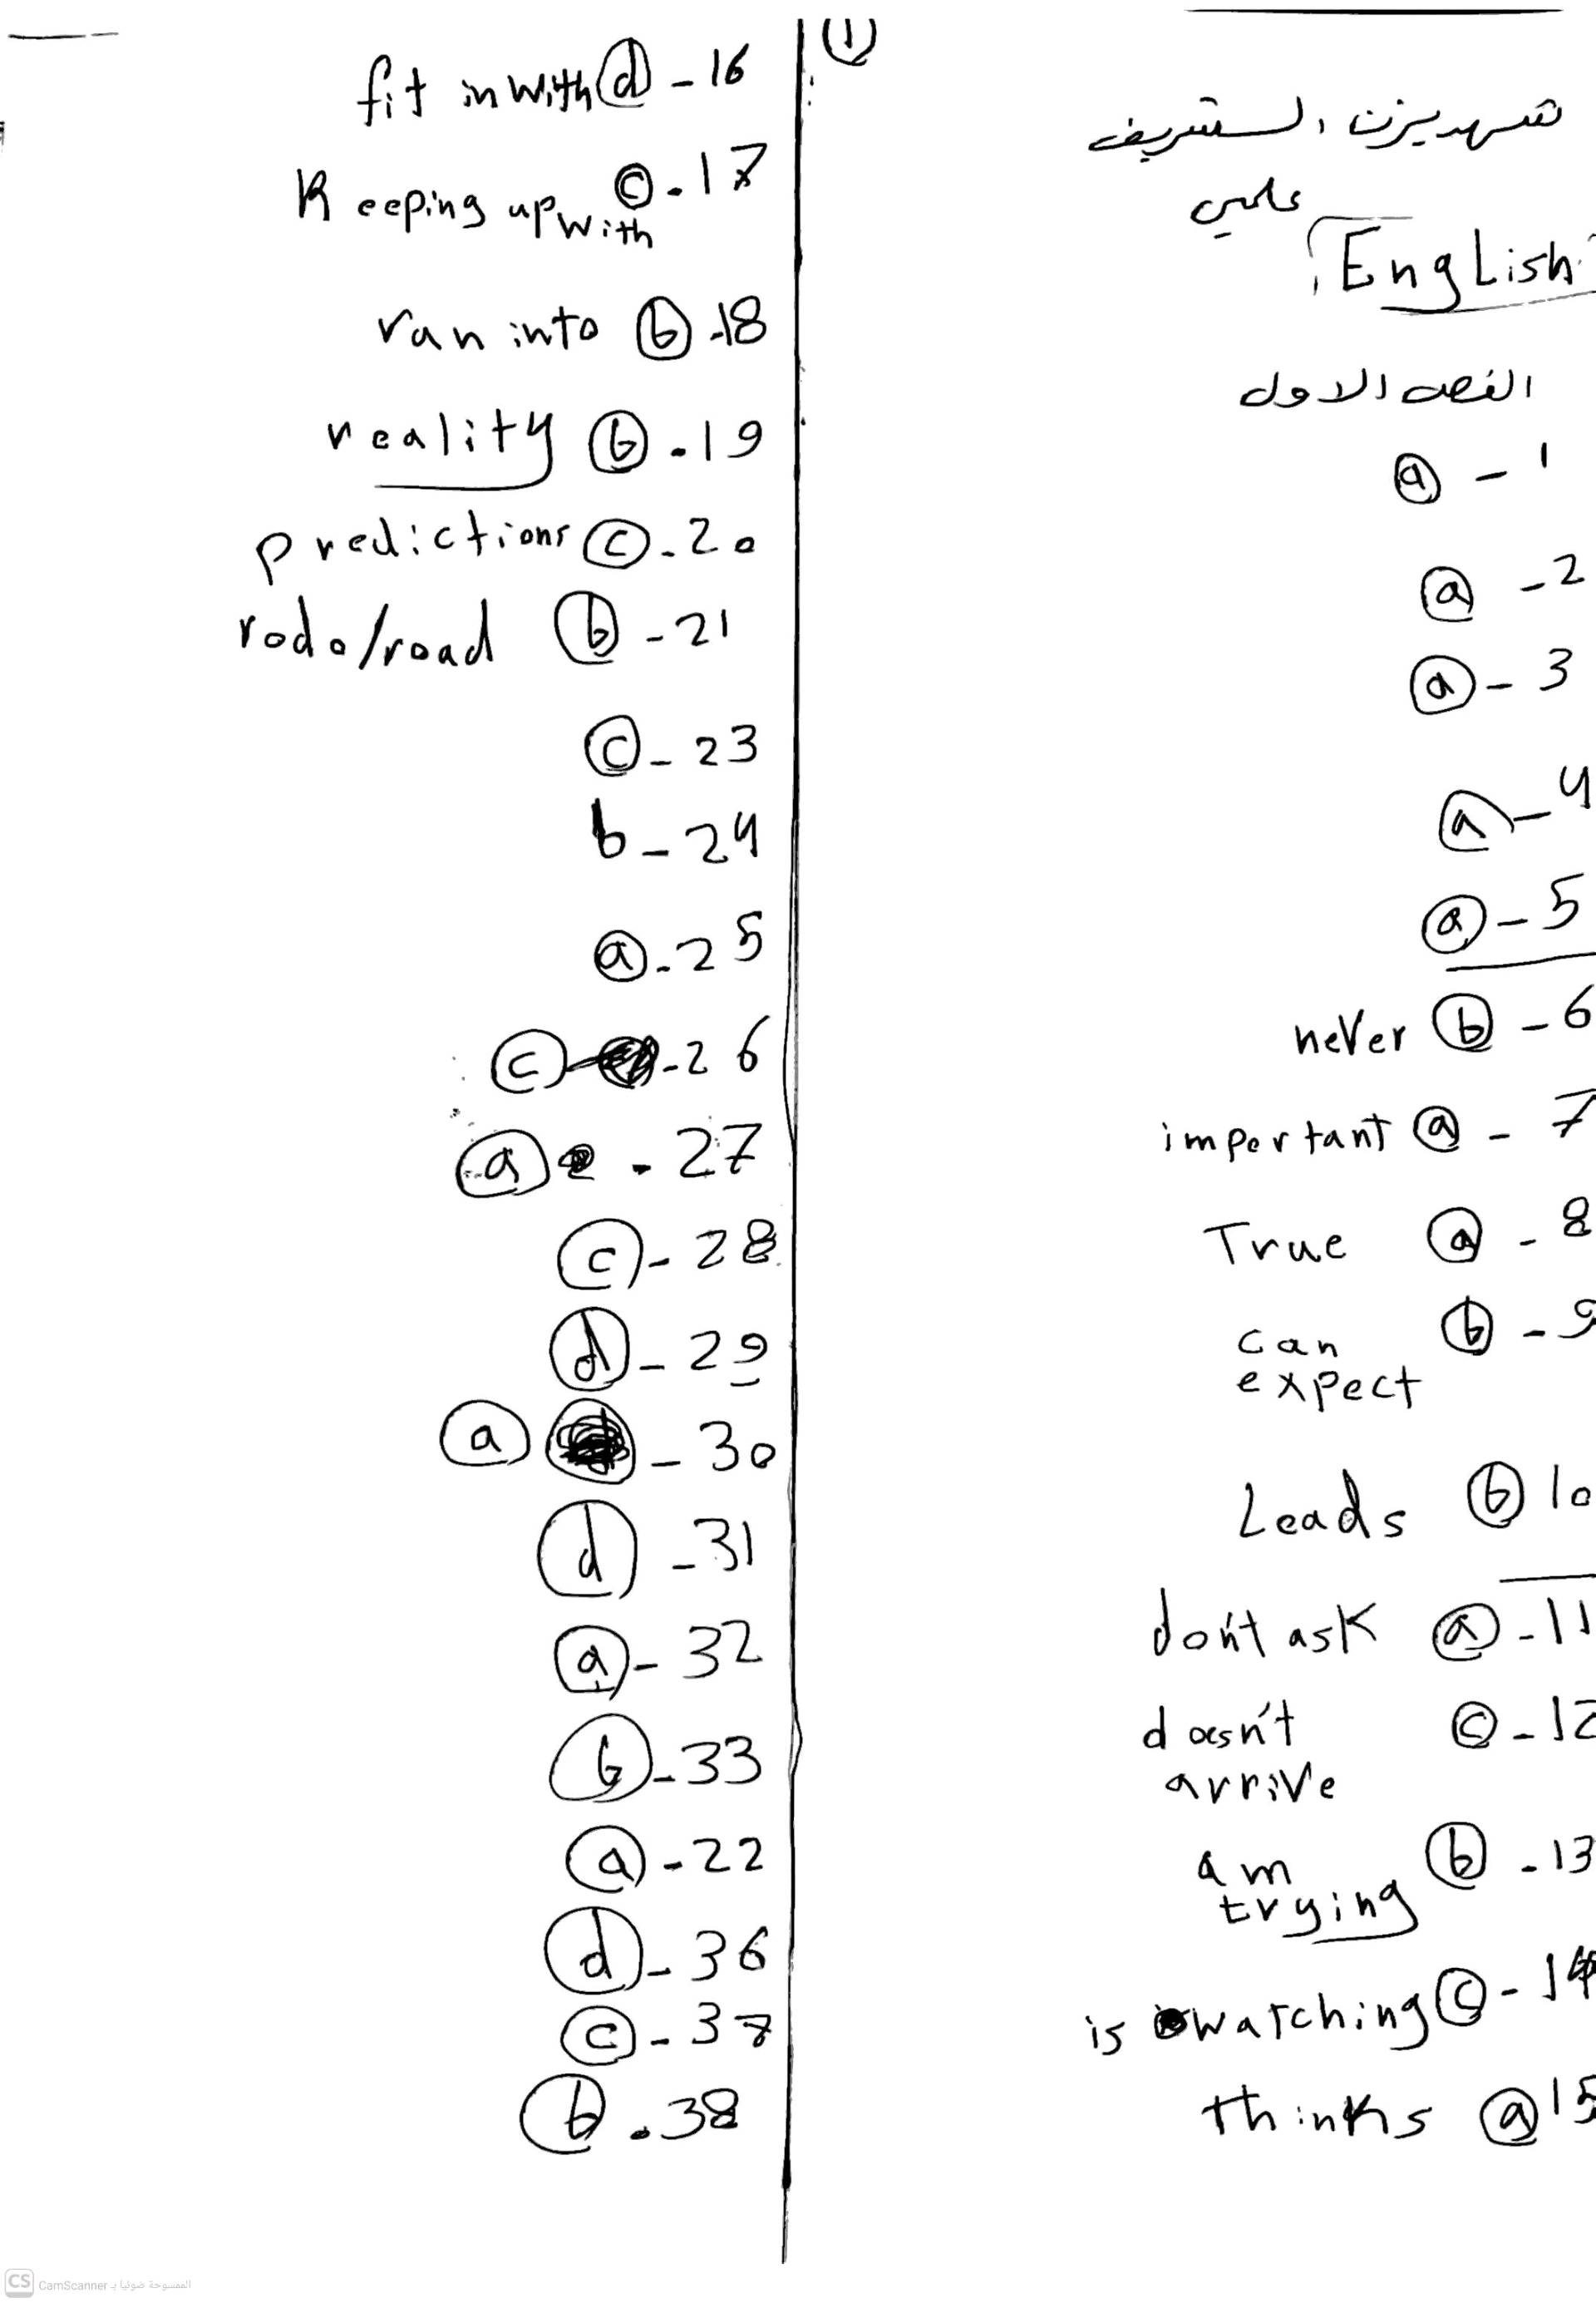 ①
شهد يزن الشريف
علمي
English
الفصل الاول
a - 1
a - 2
a - 3
a - 4
a - 5
never b - 6
important a - 7
True a - 8
can expect b - 9
Leads b 10
don't ask a - 11
doesn't arrive c - 12
am trying b - 13
is watching c - 14
thinks a 15
fit in with d - 16
Keeping up with c - 17
ran into b - 18
reality b - 19
predictions c - 20
rode/road b - 21
c - 23
b - 24
a - 25
c - 26
a - 27
c - 28
d - 29
a - 30
d - 31
a - 32
b - 33
a - 22
d - 36
c - 37
b - 38
CS CamScanner الممسوحة ضوئيا بـ